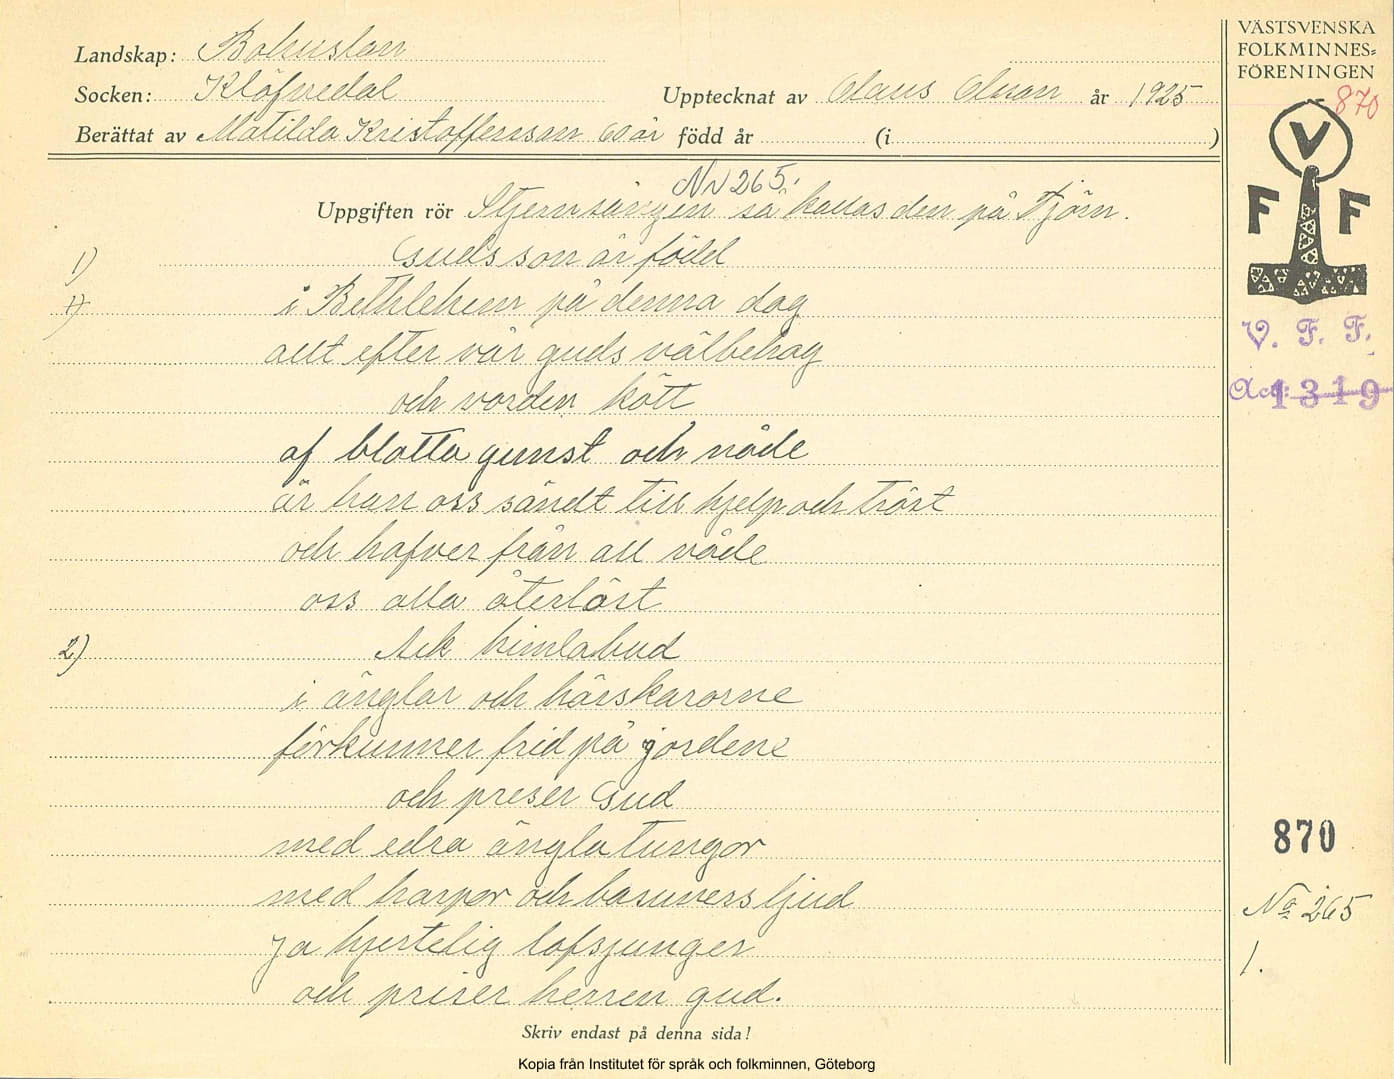 Landskap: Bohuslän
Socken: Klöfvedal
Upptecknat av Olaus Olsson år 1925
Berättat av Matilda Kristoffersson 60 år född år (i )
VÄSTSVENSKA
FOLKMINNES=
FÖRENINGEN
870
V
F F
V. F. F.
Acc: 1319
Nr 265.
Uppgiften rör Stjernsången så kallas den på Tjörn.
1) Guds son är född
1) i Bethlehem på denna dag
allt efter vår guds välbehag
och vorden kött
af blotta gunst och nåde
är han oss sändt till hjelp och tröst
och hafver från all våde
oss alla återlöst
2) Ack himlabud
i änglar och härskarorne
förkunner frid på jordene
och preser Gud
med edra ängla tungor
med harpor och basuners ljud
ja hjertelig lofsjunger
och priser herren gud.
870
No 265
1.
Skriv endast på denna sida!
Kopia från Institutet för språk och folkminnen, Göteborg